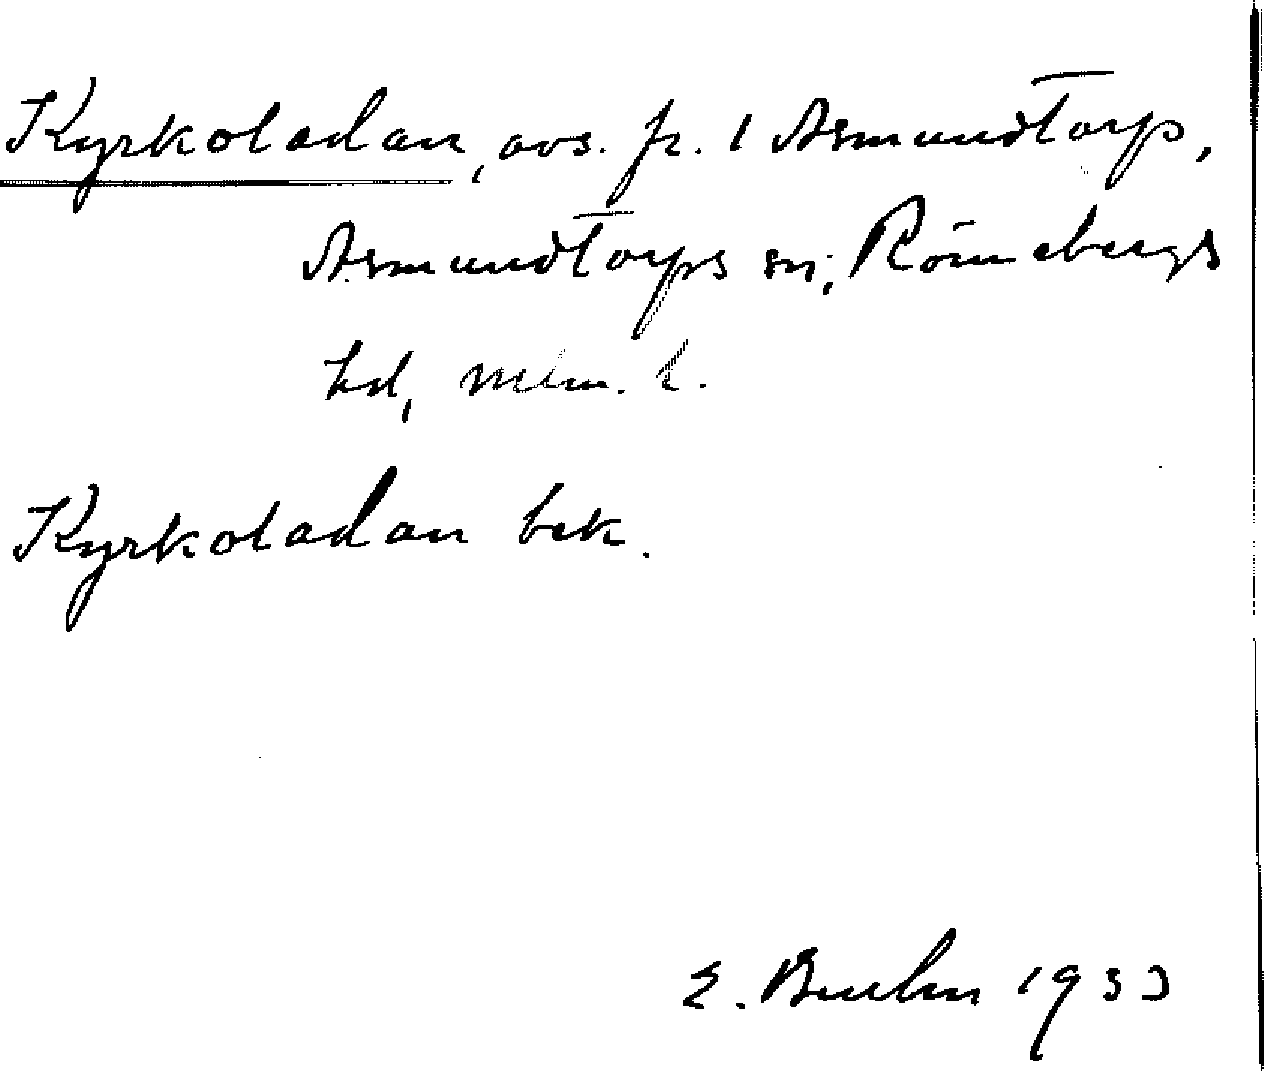 Kyrkoladan, avs. fr. 1 Asmundtorp,
Asmundtorps sn; Rönnebergs
hd, Mlm. l.
Kyrkoladan bek.
E. 1933